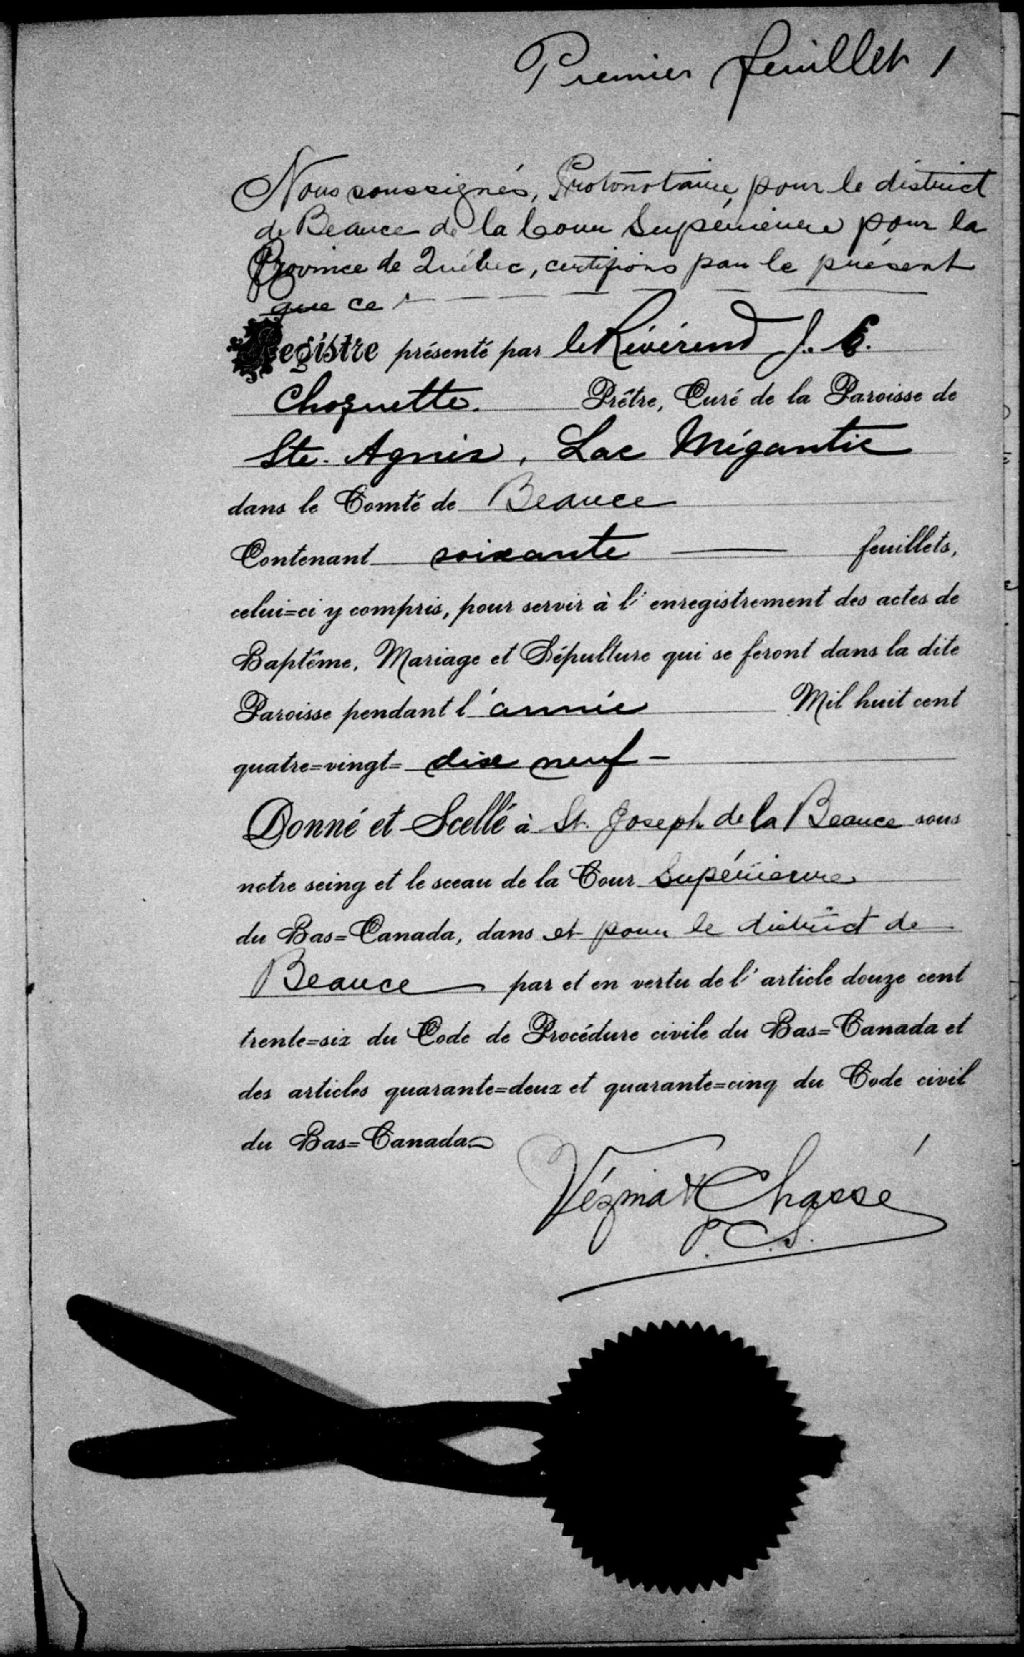 Premier feuillet 1
Nous soussignés, Protonotaire pour le district
de Beauce de la Cour Supérieure pour la
Province de Québec, certifions par le présent
que ce
Registre présenté par le Révérend J. E.
Choquette. Prêtre, Curé de la Paroisse de
Ste. Agnès, Lac Mégantic
dans le Comté de Beauce
Contenant soixante — feuillets,
celui=ci y compris, pour servir à l'enregistrement des actes de
Baptême, Mariage et Sépulture qui se feront dans la dite
Paroisse pendant l'année Mil huit cent
quatre=vingt= dix neuf —
Donné et Scellé à St. Joseph de la Beauce sous
notre seing et le sceau de la Cour Supérieure
du Bas=Canada, dans et pour le district de
Beauce par et en vertu de l'article douze cent
trente=six du Code de Procédure civile du Bas=Canada et
des articles quarante=deux et quarante=cinq du Code civil
du Bas=Canada.
Vézina & Chassé
P.C.S.